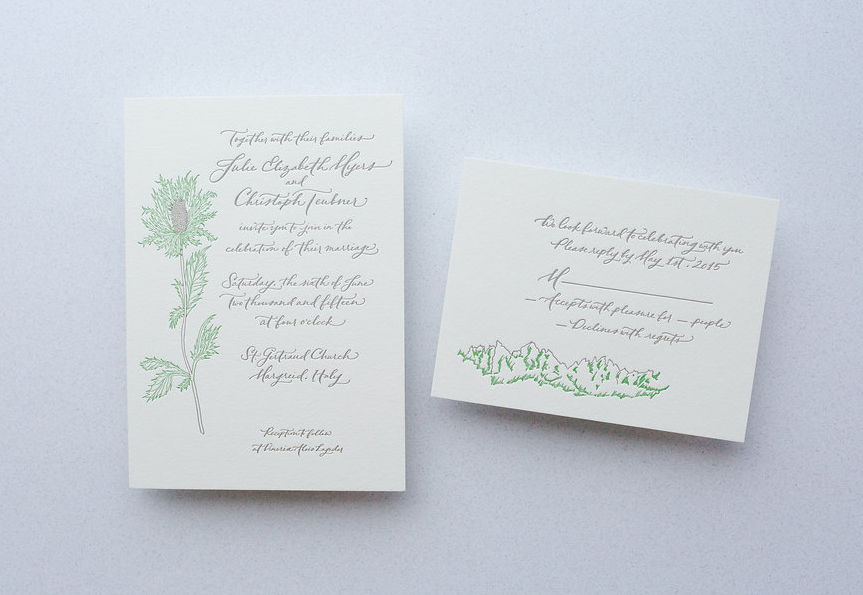 Together with their families
Julie Elizabeth Myers
and
Christoph Teubner
invite you to join in the
celebration of their marriage
Saturday, the sixth of June
Two thousand and fifteen
at four o'clock
St. Gertraud Church
Margreid, Italy
Reception to follow
at Vineria Alois Lageder
We look forward to celebrating with you
Please reply by May 1st, 2015
M
Accepts with pleasure for — people
Declines with regrets